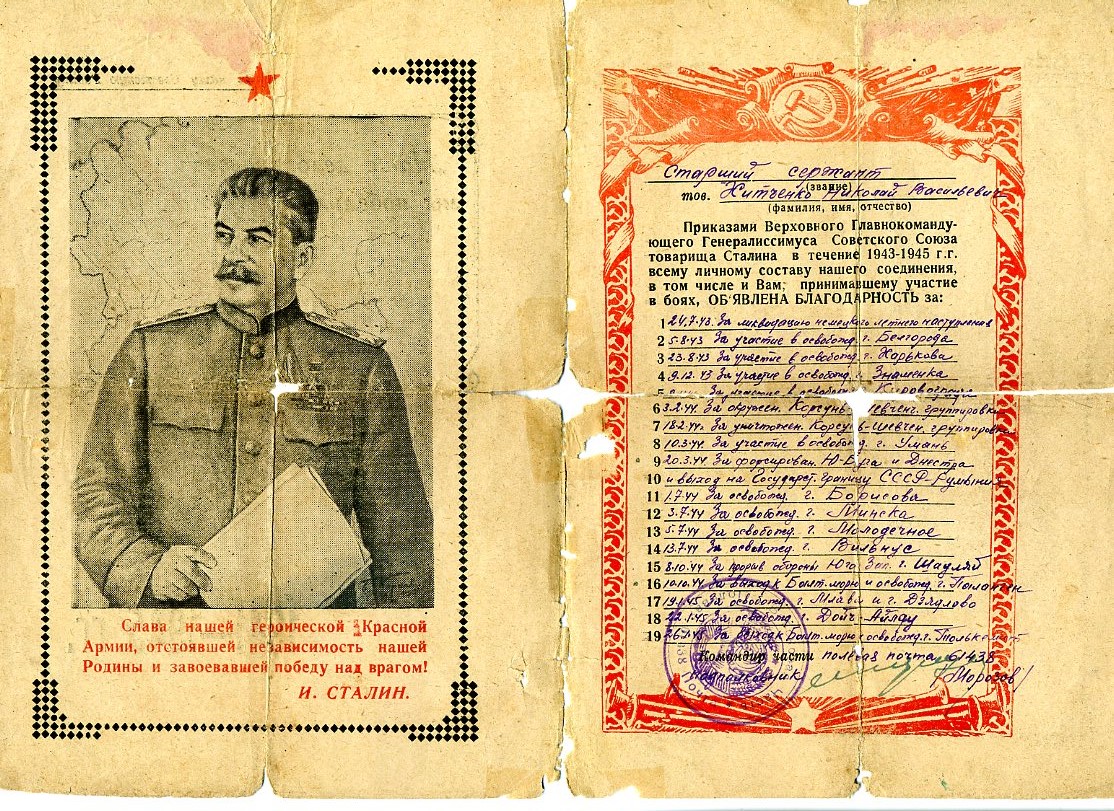 Слава нашей героической Красной
Армии, отстоявшей независимость нашей
Родины и завоевавшей победу над врагом!
И. СТАЛИН.
Старший сержант
(звание)
тов. Хитченко Николай Васильевич
(фамилия, имя, отчество)
Приказами Верховного Главнокоманду-
ющего Генералиссимуса Советского Союза
товарища Сталина в течение 1943-1945 г.г.
всему личному составу нашего соединения,
в том числе и Вам, принимавшему участие
в боях, ОБ'ЯВЛЕНА БЛАГОДАРНОСТЬ за:
1 24.7.43. За ликвидацию немецкого летнего наступления
2 5.8.43 За участие в освобожд. г. Белгорода
3 23.8.43 За участие в освобожд. г. Харькова
4 9.12.43 За участие в освобожд. г. Знаменка
5 За участие в освобожд. Кировограда
6 3.2.44. За окружен. Корсунь Шевченк. группировки
7 18.2.44. За уничтожен. Корсунь-Шевчен. группировки
8 10.3.44 За участие в освобожд. г. Умань
9 20.3.44 За форсирован. Ю-Буга и Днестра
10 и выход на Государст. границу СССР-Румыния
11 1.7.44 За освобожд. г. Борисова
12 3.7.44 За освобожд. г. Минска
13 5.7.44 За освобожд. г. Молодечное
14 13.7.44 За освобожд. г. Вильнус
15 8.10.44 За прорыв обороны Юго. Зап. г. Шауляй
16 10.10.44 За выход к Балт. морю и освобожд. г. Паланген
17 19.1.45 За освобожд. г. Млава и г. Дзялдово
18 22.1.45 За освобожд. г. Дойч-Айлау
19 26.1.45 За выход к Балт. морю и освобожд. г. Толькемит
Командир части полевая почта 61438
Подполковник (Морозов)